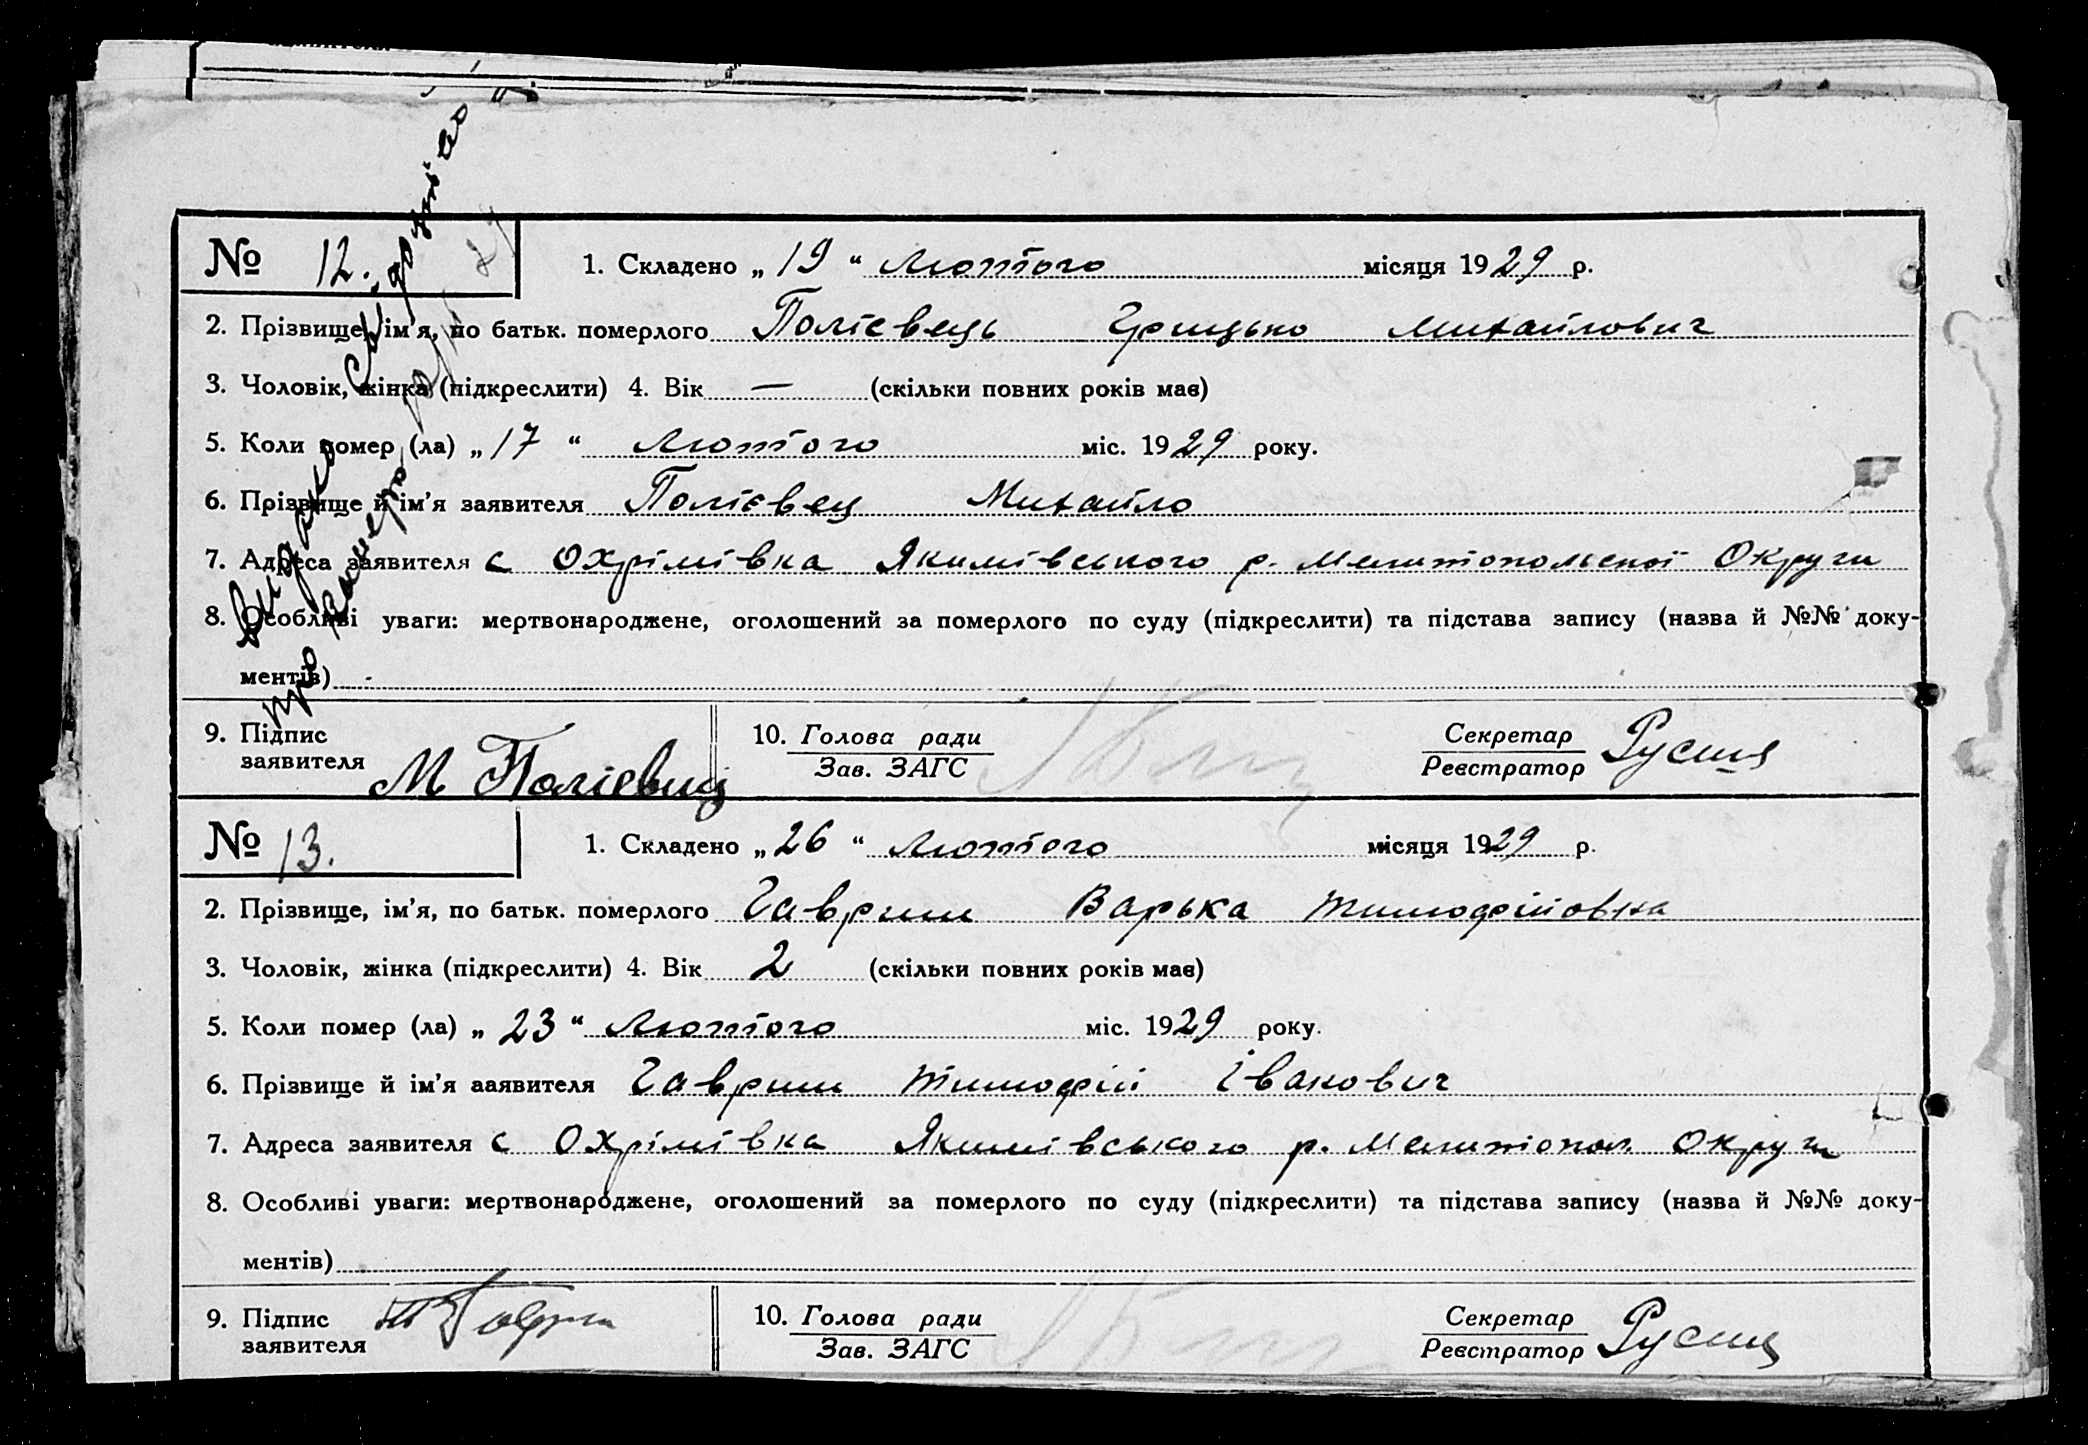 № 12. 1. Складено „19“ Лютого місяця 1929 р.
2. Прізвище, ім'я, по батьк. померлого Полієвець Грицько Михайлович
3. Чоловік, жінка (підкреслити) 4. Вік — (скільки повних років мав)
5. Коли помер (ла) „17“ Лютого міс. 1929 року.
6. Прізвище й ім'я заявителя Полієвец Михайло
7. Адреса заявителя с Охрімівка Якимівського р. Мелитопольської Округи
8. Особливі уваги: мертвонароджене, оголошений за померлого по суду (підкреслити) та підстава запису (назва й №№ доку-
ментів) -
Видано
про
9. Підпис заявителя М Полієвиц 10. Голова ради Секретар
Зав. ЗАГС Реєстратор
№ 13. 1. Складено „26“ Лютого місяця 1929 р.
2. Прізвище, ім'я, по батьк. померлого Гавриш Варька Тимофійовна
3. Чоловік, жінка (підкреслити) 4. Вік 2 (скільки повних років мав)
5. Коли помер (ла) „23“ Лютого міс. 1929 року.
6. Прізвище й ім'я заявителя Гавриш Тимофій Іванович
7. Адреса заявителя с Охрімівка Якимівського р. Мелитопол. Округи
8. Особливі уваги: мертвонароджене, оголошений за померлого по суду (підкреслити) та підстава запису (назва й №№ доку-
ментів)
9. Підпис заявителя 10. Голова ради Секретар
Зав. ЗАГС Реєстратор